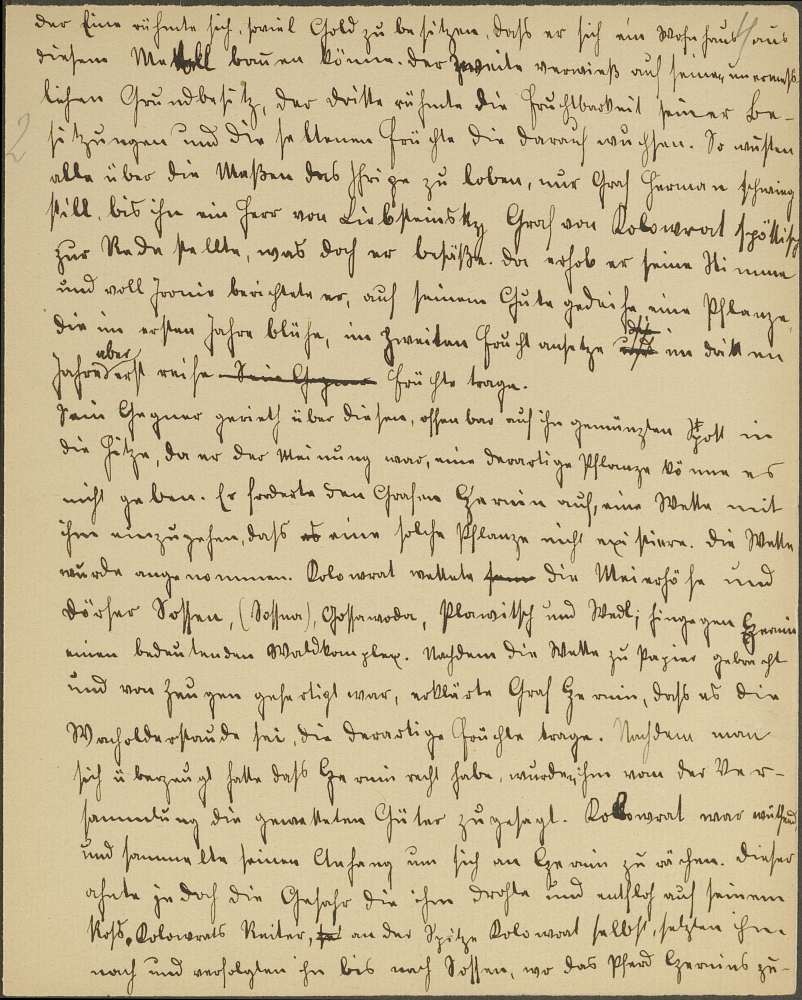 der Eine rühmte sich, soviel Gold zu besitzen, dass er sich ein Wohnhaus aus
diesem Metall bauen könne. Der Zweite verwieß auf seinen unermess-
lichen Grundbesitz, der dritte rühmte die Fruchtbarkeit seiner Be-
2
sitzungen und die seltenen Früchte die darauf wuchsen. So wusten
alle über die Maßen das Ihrige zu loben, nur Graf Herman schwieg
still, bis ihn ein Herr von Liebsteinsky, Graf von Kolowrat spöttisch
zur Rede stellte, was doch er besäße. Da erhob er seine Stimme
und voll Ironie berichtete er, auf seinem Gute gedeihe eine Pflanze,
die im ersten Jahre blühe, im zweiten Frucht ansetze im dritten
Jahre aber erst reife Früchte trage.
Sein Gegner gerieth über diesen, offenbar auf ihn gemünzten Spott in
die Hitze, da er der Meinung war, eine derartige Pflanze könne es
nicht geben. Er forderte den Grafen Czernin auf, eine Wette mit
ihm einzugehen, dass eine solche Pflanze nicht existiere. Die Wette
wurde angenommen. Kolowrat wettete die Meierhöfe und
Dörfer Sossen, (Sossna), Gossawoda, Plawitsch und Wedl; hingegen Czernin
einen bedeutenden Waldkomplex. Nachdem die Wette zu Papier gebracht
und von Zeugen gefertigt war, erklärte Graf Czernin, dass es die
Wacholderstaude sei, die derartige Früchte trage. Nachdem man
sich überzeugt hatte dass Czernin recht habe, wurden ihm von der Ver-
sammlung die gewetteten Güter zugesagt. Kolowrat war wüthend
und sammelte seinen Anhang um sich an Czernin zu rächen. Dieser
ahnte jedoch die Gefahr die ihm drohte und entfloh auf seinem
Ross. Kolowrats Reiter, an der Spitze Kolowrat selbst, setzten ihm
nach und verfolgten ihn bis nach Sossen, wo das Pferd Czernins zu-